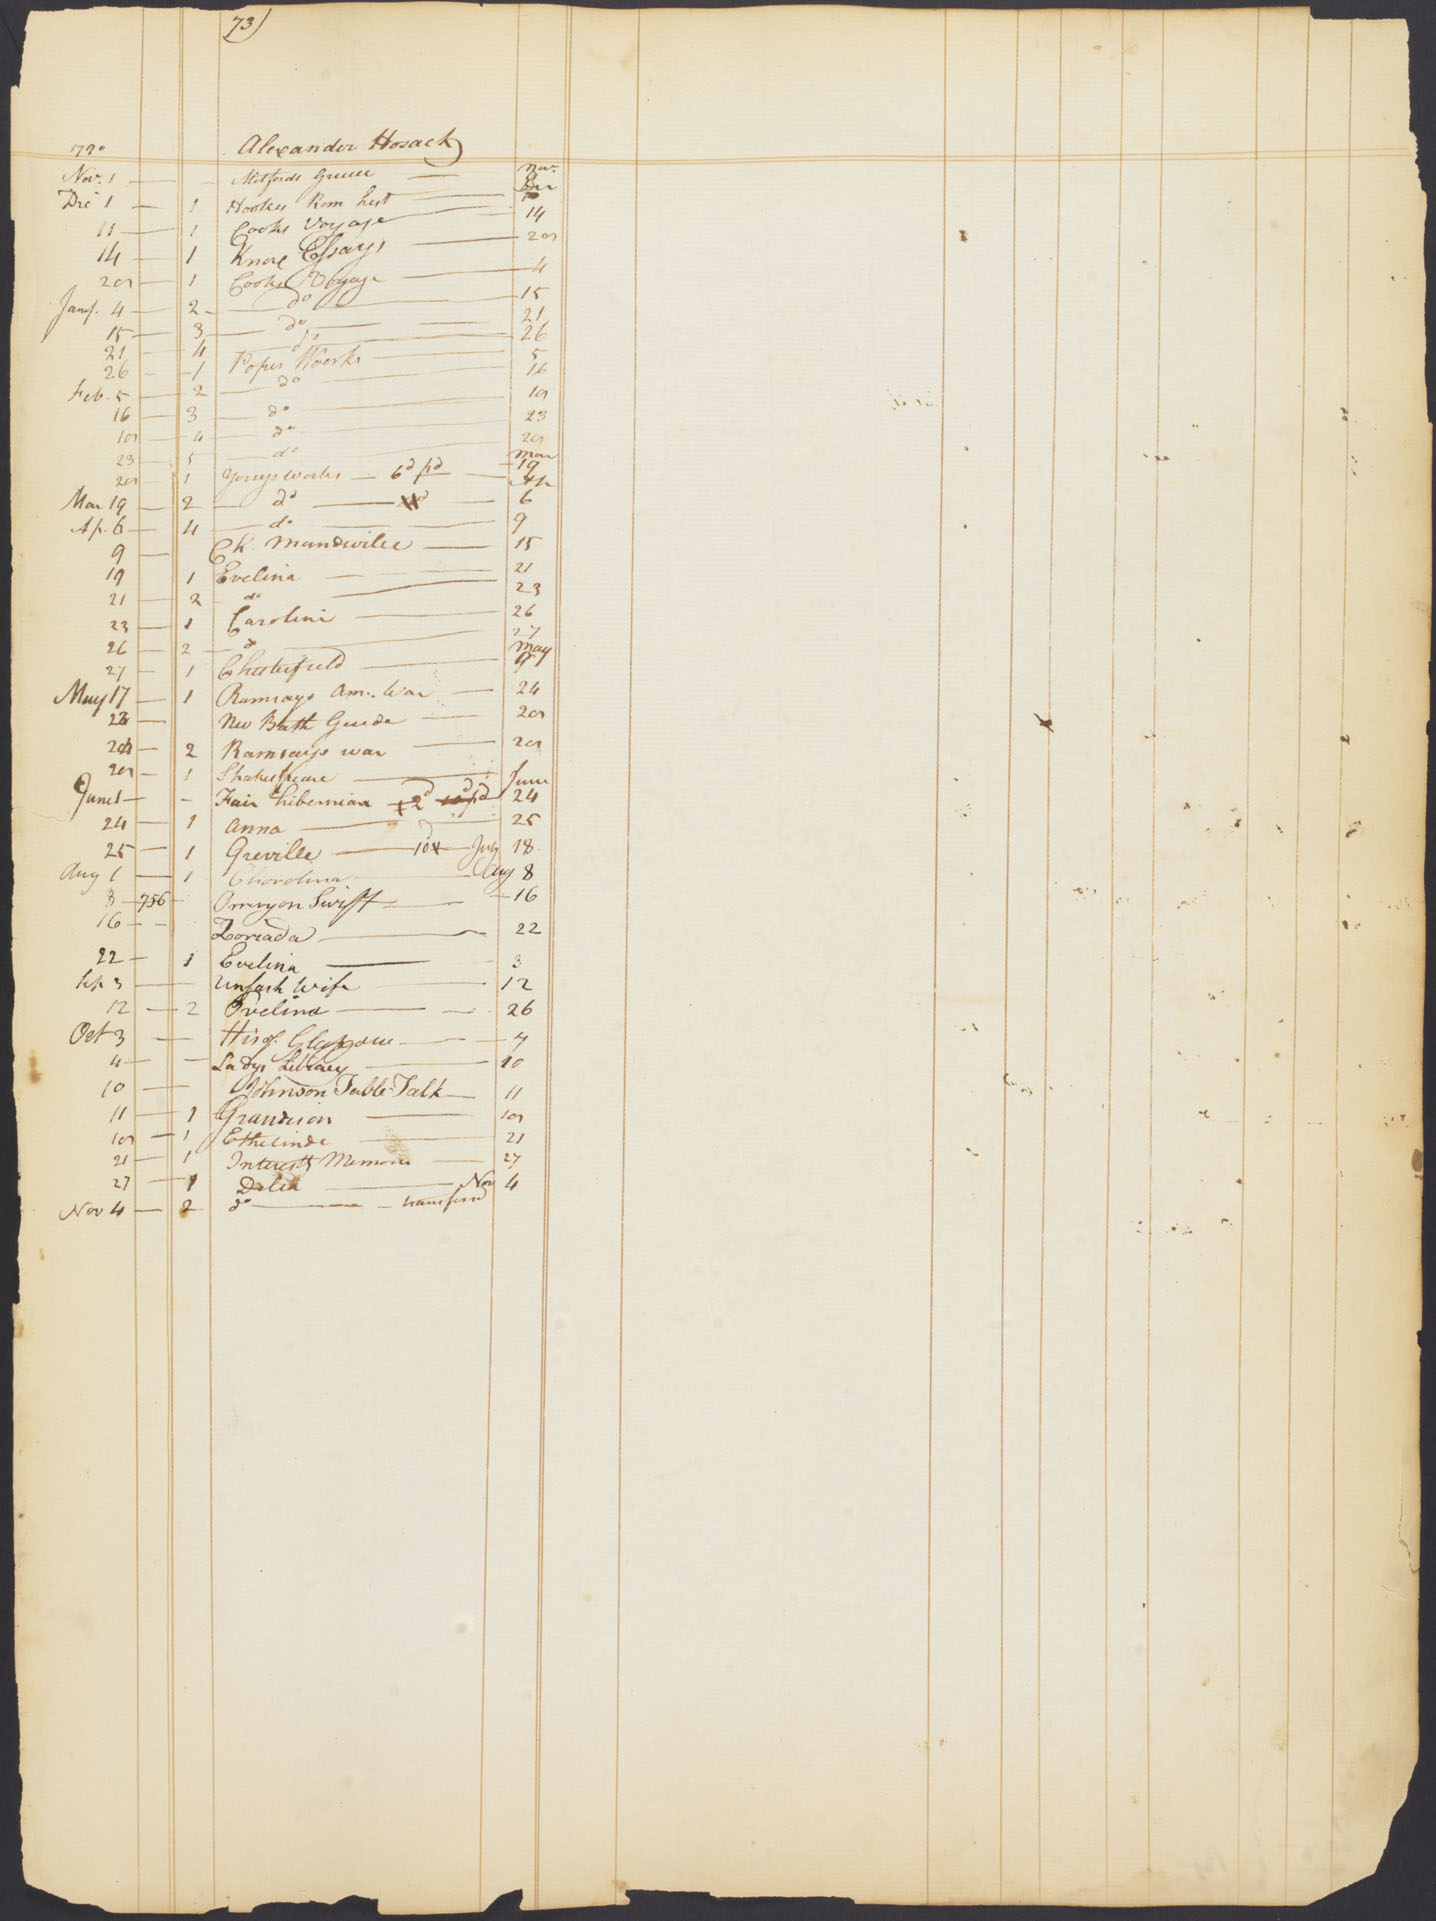 73)
790 Alexander Hosack
Nov. 1 — — Mitfords Greece — Nov.
Dec 1 — 1 Hookes Rom hist — Dec
11 — 1 Cooks Voyage — 14
14 — 1 Knox Essays — 28
28 — 1 Cooks Voyage — 4
Jany. 4 — 2 — do — 15
15 — 3 — do — 21
21 — 4 — do — 26
26 — 1 Popes Woorks — 5
Feb. 5 — 2 — do — 16
16 — 3 — do — 18
18 — 4 — do — 23
23 — 5 — do — 28
28 — 1 Yonngs works — 6d pd — Mar 19
Mar 19 — 2 — do — Ap 6
Ap. 6 — 4 — do — 9
9 — Ch. Mandvilee — 15
19 1 Evelina — 21
21 — 2 — do — 23
23 — 1 Carolini — 26
26 — 2 — do — 27
27 — 1 Chesterfield — May
May 17 — 1 Ramsays Am. War — 24
— New Bath Guide — 28
28 — 2 Ramsays war — 28
28 — 1 Shakespeare — June
June 1 — — Fair hibernian 24
24 — 1 Anna — 25
25 — 1 Greville — July 18
Aug 1 — 1 — Aug 8
8 — 756 — Orreryon Swift — 16
16 — — Zoriada — 22
22 — 1 Evelina — 3
Sep 3 — Unfash Wife — 12
12 — 2 Evelina — 26
Oct 3 — — — 4
4 — — Ladys Library — 10
10 — Johnson Table Talk — 11
11 — 1 Grandison — 18
18 — 1 Ethelinde — 21
21 — 1 Interestg Memoirs — 27
27 — 1 Delia — Nov 4
Nov 4 — 2 do — — transferred